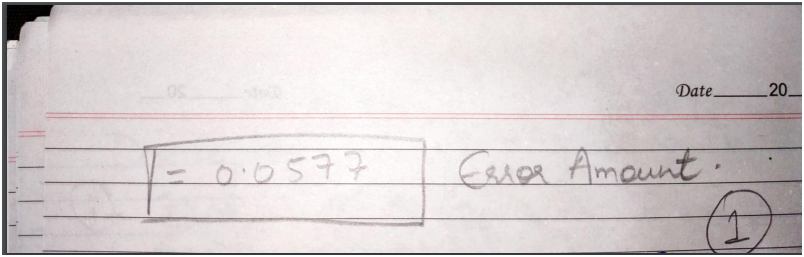 Date______20__
= 0.0577 Error Amount.
1